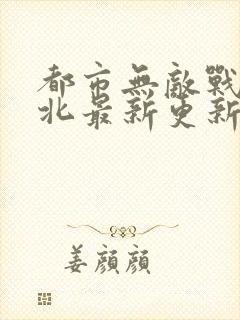 都市無敵戰
北最新更新
姜顏顏